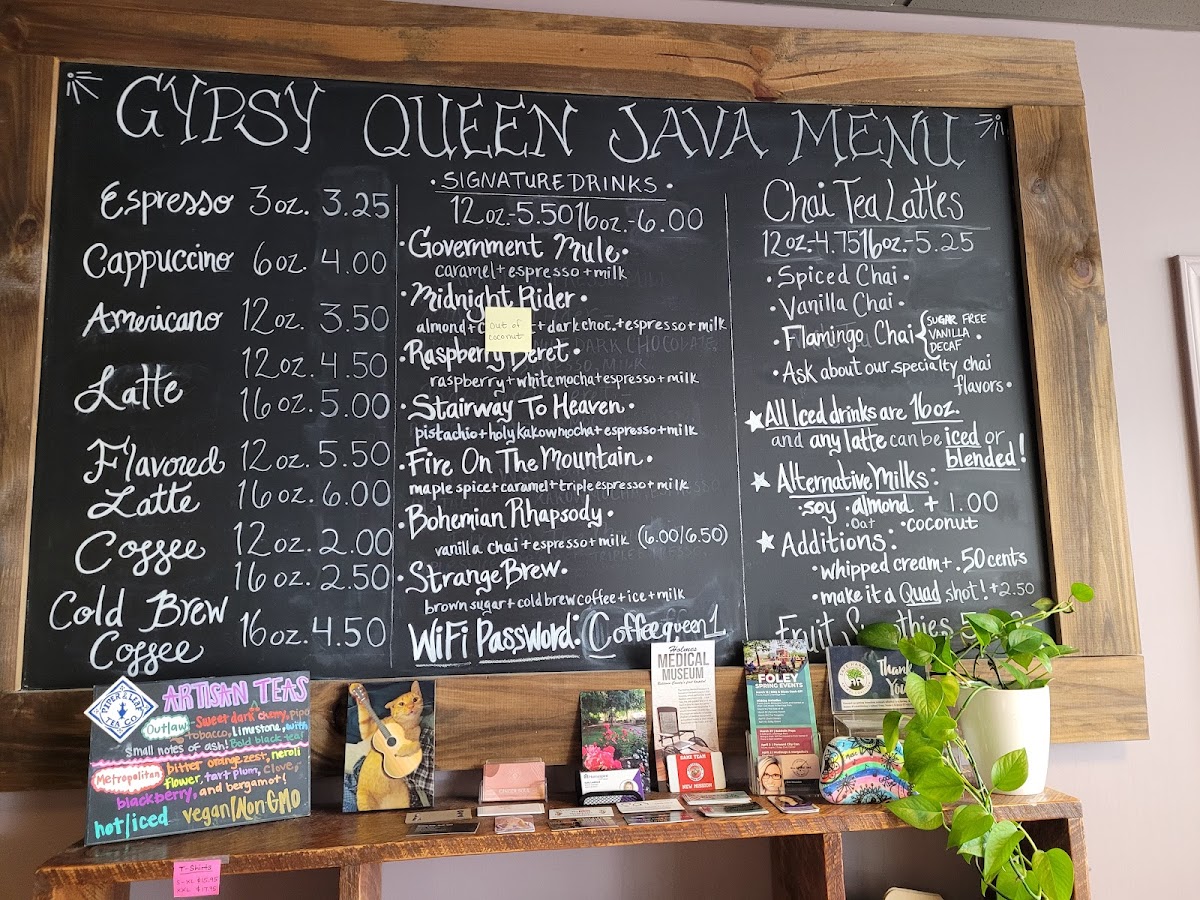 GYPSY QUEEN JAVA MENU
Espresso 3oz. 3.25
Cappuccino 6oz. 4.00
Americano 12oz. 3.50
Latte 12oz. 4.50
16oz. 5.00
Flavored Latte 12oz. 5.50
16oz. 6.00
Coffee 12oz. 2.00
16oz. 2.50
Cold Brew Coffee 16oz. 4.50
• SIGNATURE DRINKS •
12oz.-5.50 16oz.-6.00
• Government Mule •
caramel + espresso + milk
• Midnight Rider •
almond + + dark choc. + espresso + milk
out of
coconut
• Raspberry Beret •
raspberry + white mocha + espresso + milk
• Stairway To Heaven •
pistachio + holy kakow mocha + espresso + milk
• Fire On The Mountain •
maple spice + caramel + triple espresso + milk
• Bohemian Rhapsody •
vanilla chai + espresso + milk (6.00/6.50)
• Strange Brew •
brown sugar + cold brew coffee + ice + milk
WiFi Password: Coffeequeen1
Chai Tea Lattes
12oz.-4.75 16oz.-5.25
• Spiced Chai •
• Vanilla Chai •
• Flamingo Chai { SUGAR FREE
VANILLA
DECAF
• Ask about our specialty chai
flavors •
All Iced drinks are 16oz.
and any latte can be iced or
blended!
Alternative Milks:
• soy • almond + 1.00
• oat • coconut
Additions:
• whipped cream + .50 cents
• make it a Quad shot! + 2.50
Fruit Smoothies
PAPER & LEAF
TEA CO.
ARTISAN TEAS
Outlaw - Sweet dark cherry, pipe
tobacco, limestone, with
small notes of ash! Bold black tea!
Metropolitan bitter orange zest, neroli
flower, tart plum, clove,
blackberry, and bergamot!
hot/iced vegan/Non GMO
T-Shirts
S-XL $15.95
XXL $17.95
Holmes
MEDICAL
MUSEUM
FOLEY
SPRING EVENTS
Thank
You